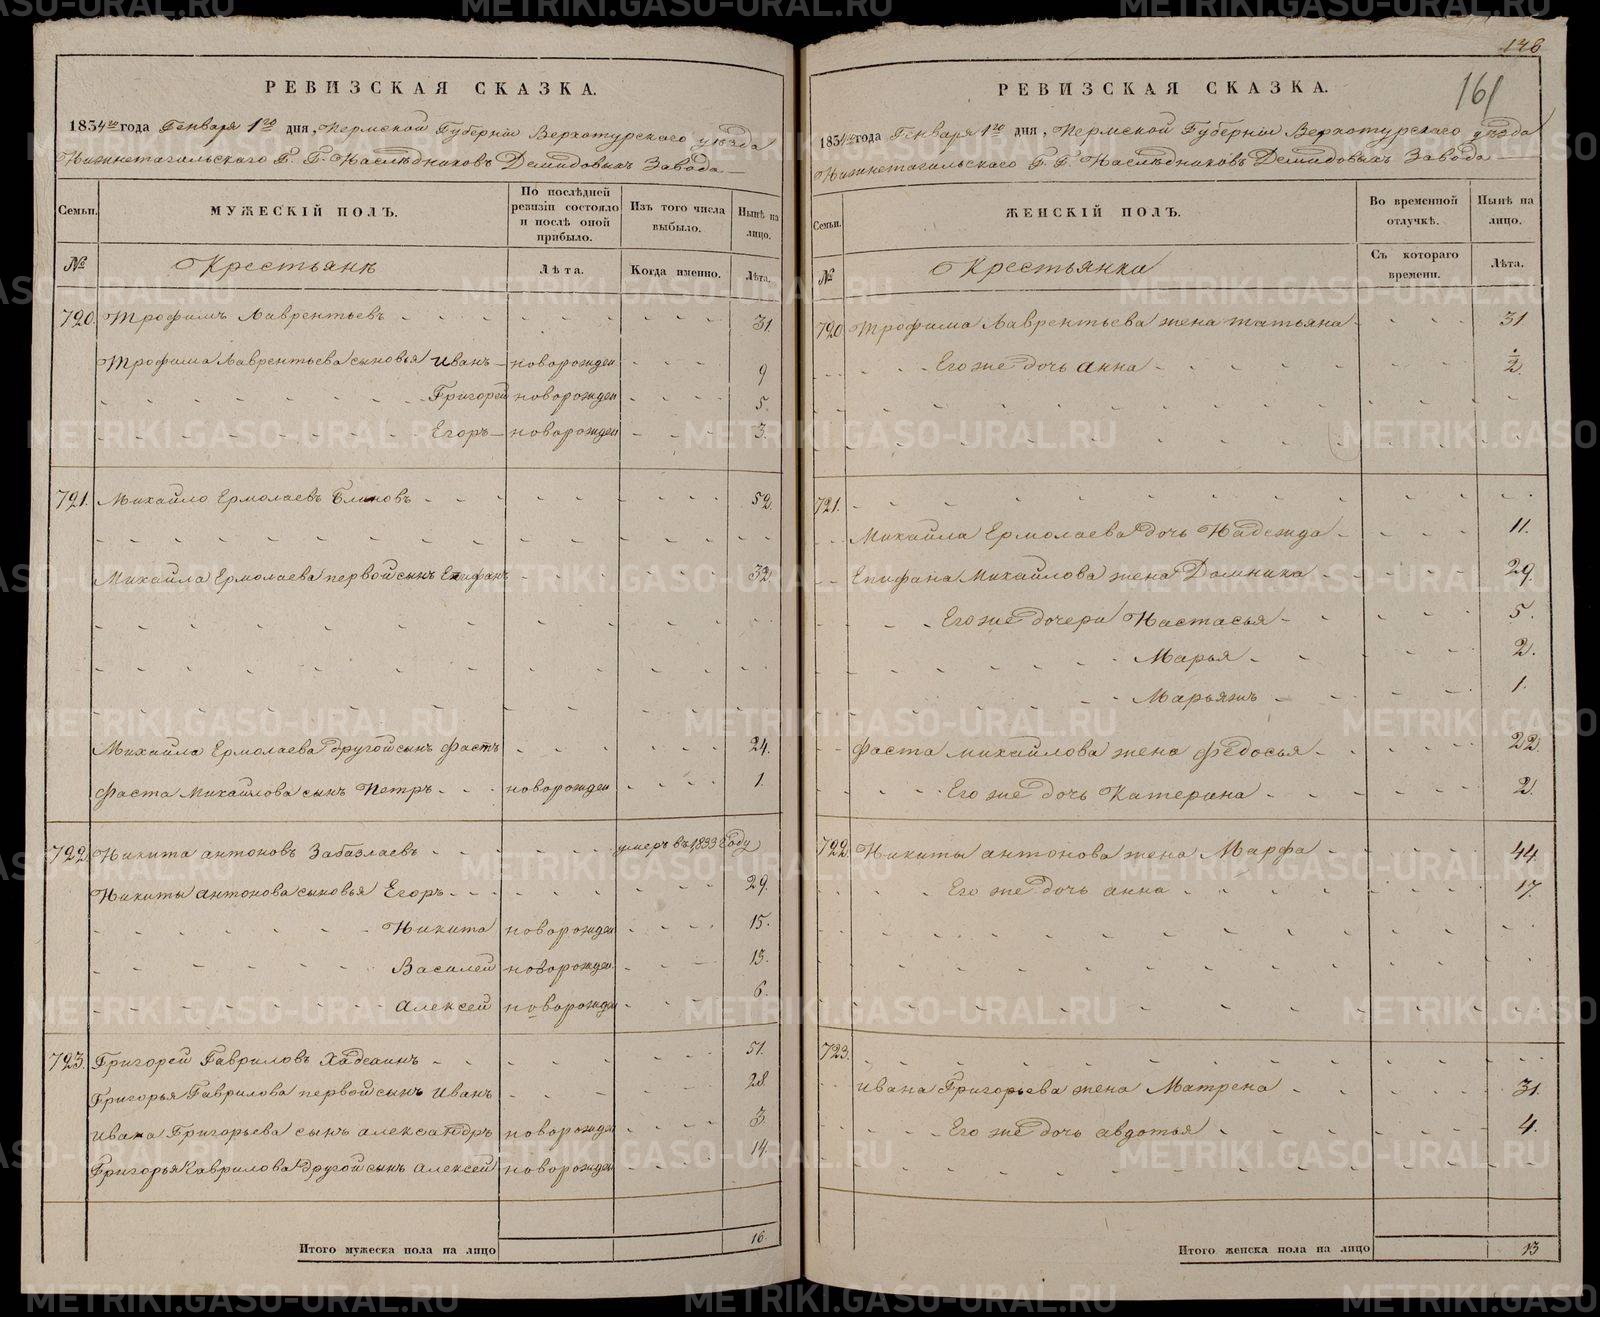 РЕВИЗСКАЯ СКАЗКА.
1834го года Генваря 1го дня, Пермской Губернiи Верхотурскаго уѣзда
Нижнетагильскаго Г. Г. Наслѣдниковъ Демидовыхъ Завода
Семьи.
МУЖЕСКIЙ ПОЛЪ.
По послѣдней ревизiи состояло и послѣ оной прибыло.
Изъ того числа выбыло.
Нынѣ на лицо.
№
Крестьянъ
Лѣта.
Когда именно.
Лѣта.
720. Трофимъ Лаврентьевъ 31
Трофима Лаврентьева сыновья Иванъ новорожден 9
Григорей новорожден 5.
Егоръ новорожден 3.
721. Михайло Ермолаевъ Блиновъ 52.
Михайла Ермолаева первой сынъ Епифанъ 32
Михайла Ермолаева другой сынъ Фастъ 24.
Фаста Михайлова сынъ Петръ новорожден 1.
722. Никита Антоновъ Забазлаевъ умеръ въ 1833 Году
Никиты Антонова сыновья Егоръ 29.
Никита новорожден 15.
Василей новорожден 13.
Алексей новорожден 6.
723. Григорей Гавриловъ 51.
Григорья Гаврилова первой сынъ Иванъ 28
Ивана Григорьева сынъ Александръ новорожден 3.
Григорья Гаврилова другой сынъ Алексей новорожден 14.
Итого мужеска пола на лицо 16.
161
РЕВИЗСКАЯ СКАЗКА.
1834го года Генваря 1го дня, Пермской Губернiи Верхотурскаго уѣзда
Нижнетагильскаго Г. Г. Наслѣдниковъ Демидовыхъ Завода
Семьи.
ЖЕНСКIЙ ПОЛЪ.
Во временной отлучкѣ.
Нынѣ на лицо.
№
Крестьянка
Съ котораго времени.
Лѣта.
720 Трофима Лаврентьева жена Татьяна 31
Его же дочь Анна 1/2.
721.
Михайла Ермолаева дочь Надежда 11.
Епифана Михайлова жена Домника 29.
Его же дочери Настасья 5.
Марья 2.
Марьямъ 1.
Фаста Михайлова жена Федосья 22.
Его же дочь Катерина 2.
722. Никиты Антонова жена Марфа 44
Его же дочь Анна 17.
723.
Ивана Григорьева жена Матрена 31.
Его же дочь Авдотья 4.
Итого женска пола на лицо 13
METRIKI.GASO-URAL.RU